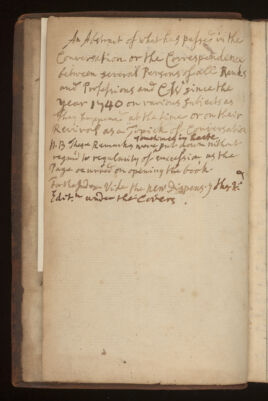 An Abstract of what has passed in the
Conversation or the Correspondence
between several Persons of all Ranks
and Professions and CW since the
year 1740 on various Subjects as
they happened at the time or on their
Revival as a Topick of Conversation
sometimes in haste
NB These Remarks were put down without
regard to regularity of succession as the
Page occurred on opening the book
For the Index Vide the new
Edit.n under the Covers.